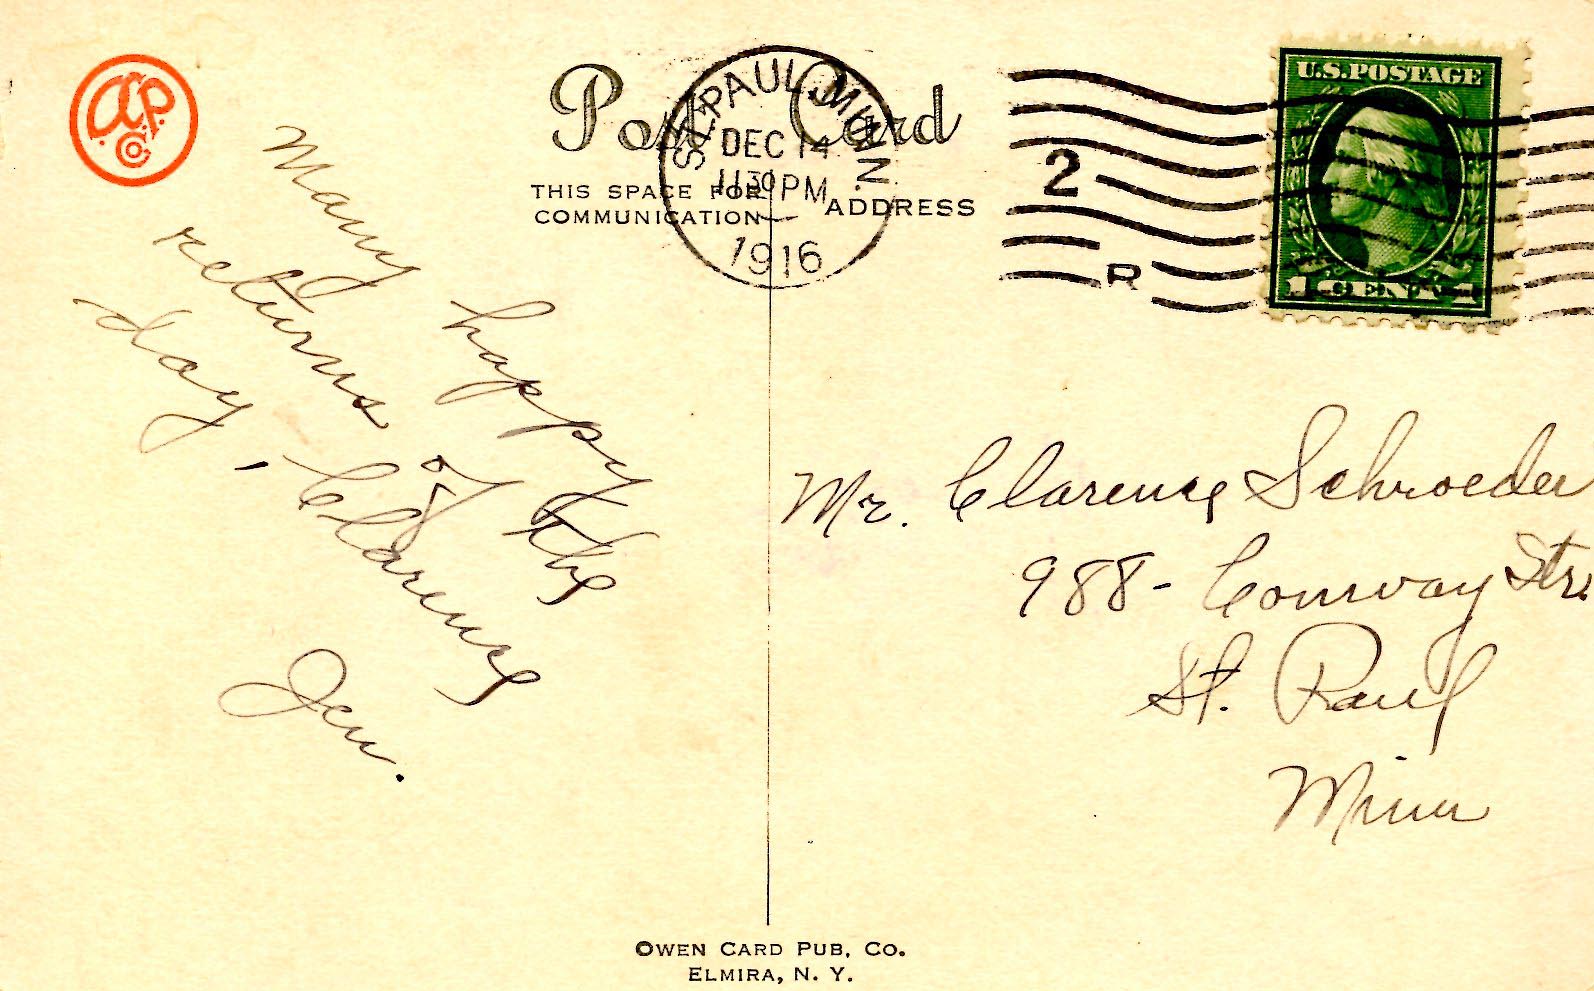 a.P. Co.
Post Card
THIS SPACE FOR
COMMUNICATION
ADDRESS
ST. PAUL, MINN.
DEC 14
11 30 PM
1916
2
R
U.S. POSTAGE
1 CENT 1
Many happy
returns of the
day, Clarence
Jen.
Mr. Clarence Schroeder
988 - Conway Str.
St. Paul
Minn
OWEN CARD PUB. CO.
ELMIRA, N. Y.